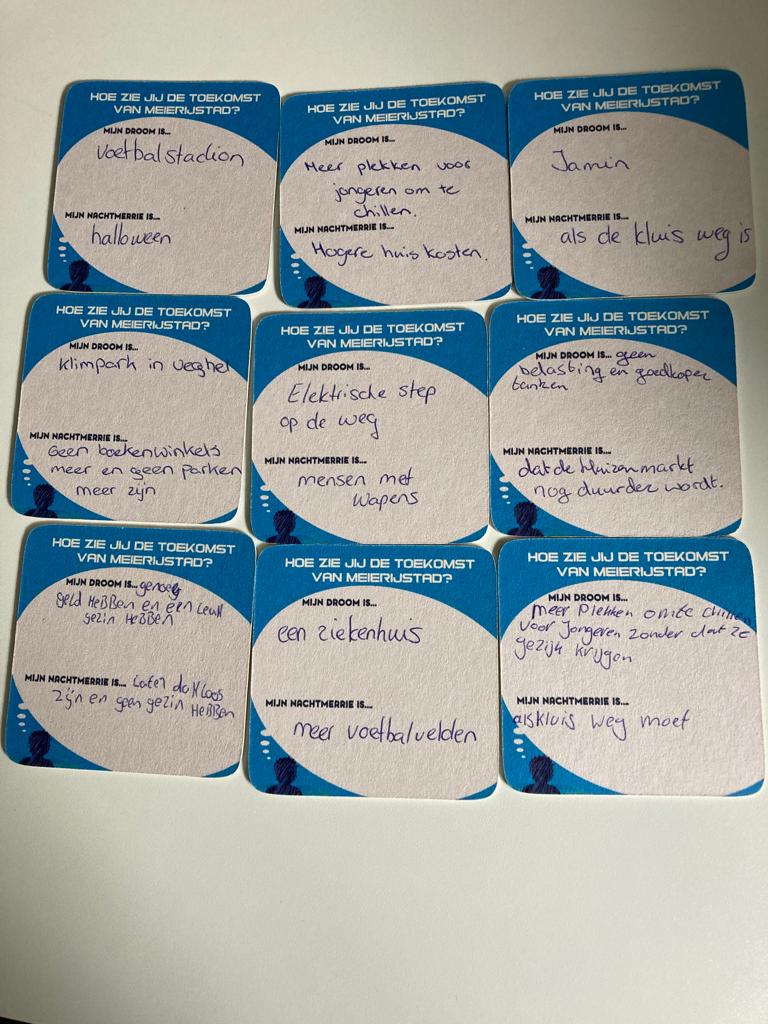 HOE ZIE JIJ DE TOEKOMST
VAN MEIERIJSTAD?
MIJN DROOM IS...
Voetbalstadion
MIJN NACHTMERRIE IS...
halloween
HOE ZIE JIJ DE TOEKOMST
VAN MEIERIJSTAD?
MIJN DROOM IS...
Meer plekken voor
jongeren om te
chillen.
MIJN NACHTMERRIE IS...
Hogere huis kosten.
HOE ZIE JIJ DE TOEKOMST
VAN MEIERIJSTAD?
MIJN DROOM IS...
Jamin
MIJN NACHTMERRIE IS...
als de kluis weg is
HOE ZIE JIJ DE TOEKOMST
VAN MEIERIJSTAD?
MIJN DROOM IS...
Klimpark in Veghel
MIJN NACHTMERRIE IS...
Geen boekenwinkels
meer en geen parken
meer zijn
HOE ZIE JIJ DE TOEKOMST
VAN MEIERIJSTAD?
MIJN DROOM IS...
Elektrische step
op de weg
MIJN NACHTMERRIE IS...
mensen met
wapens
HOE ZIE JIJ DE TOEKOMST
VAN MEIERIJSTAD?
MIJN DROOM IS... geen
belasting en goedkoper
tanken
MIJN NACHTMERRIE IS...
dat de Huizenmarkt
nog duurder wordt.
HOE ZIE JIJ DE TOEKOMST
VAN MEIERIJSTAD?
MIJN DROOM IS... genoeg
geld HeBBen en een Leuk
gezin HeBBen
MIJN NACHTMERRIE IS... Later dakloos
zijn en geen gezin HeBBen
HOE ZIE JIJ DE TOEKOMST
VAN MEIERIJSTAD?
MIJN DROOM IS...
een ziekenhuis
MIJN NACHTMERRIE IS...
meer voetbalvelden
HOE ZIE JIJ DE TOEKOMST
VAN MEIERIJSTAD?
MIJN DROOM IS...
Meer Plekken omte chillen
voor Jongeren zonder dat ze
gezijk krijgen
MIJN NACHTMERRIE IS...
alskluis weg moet